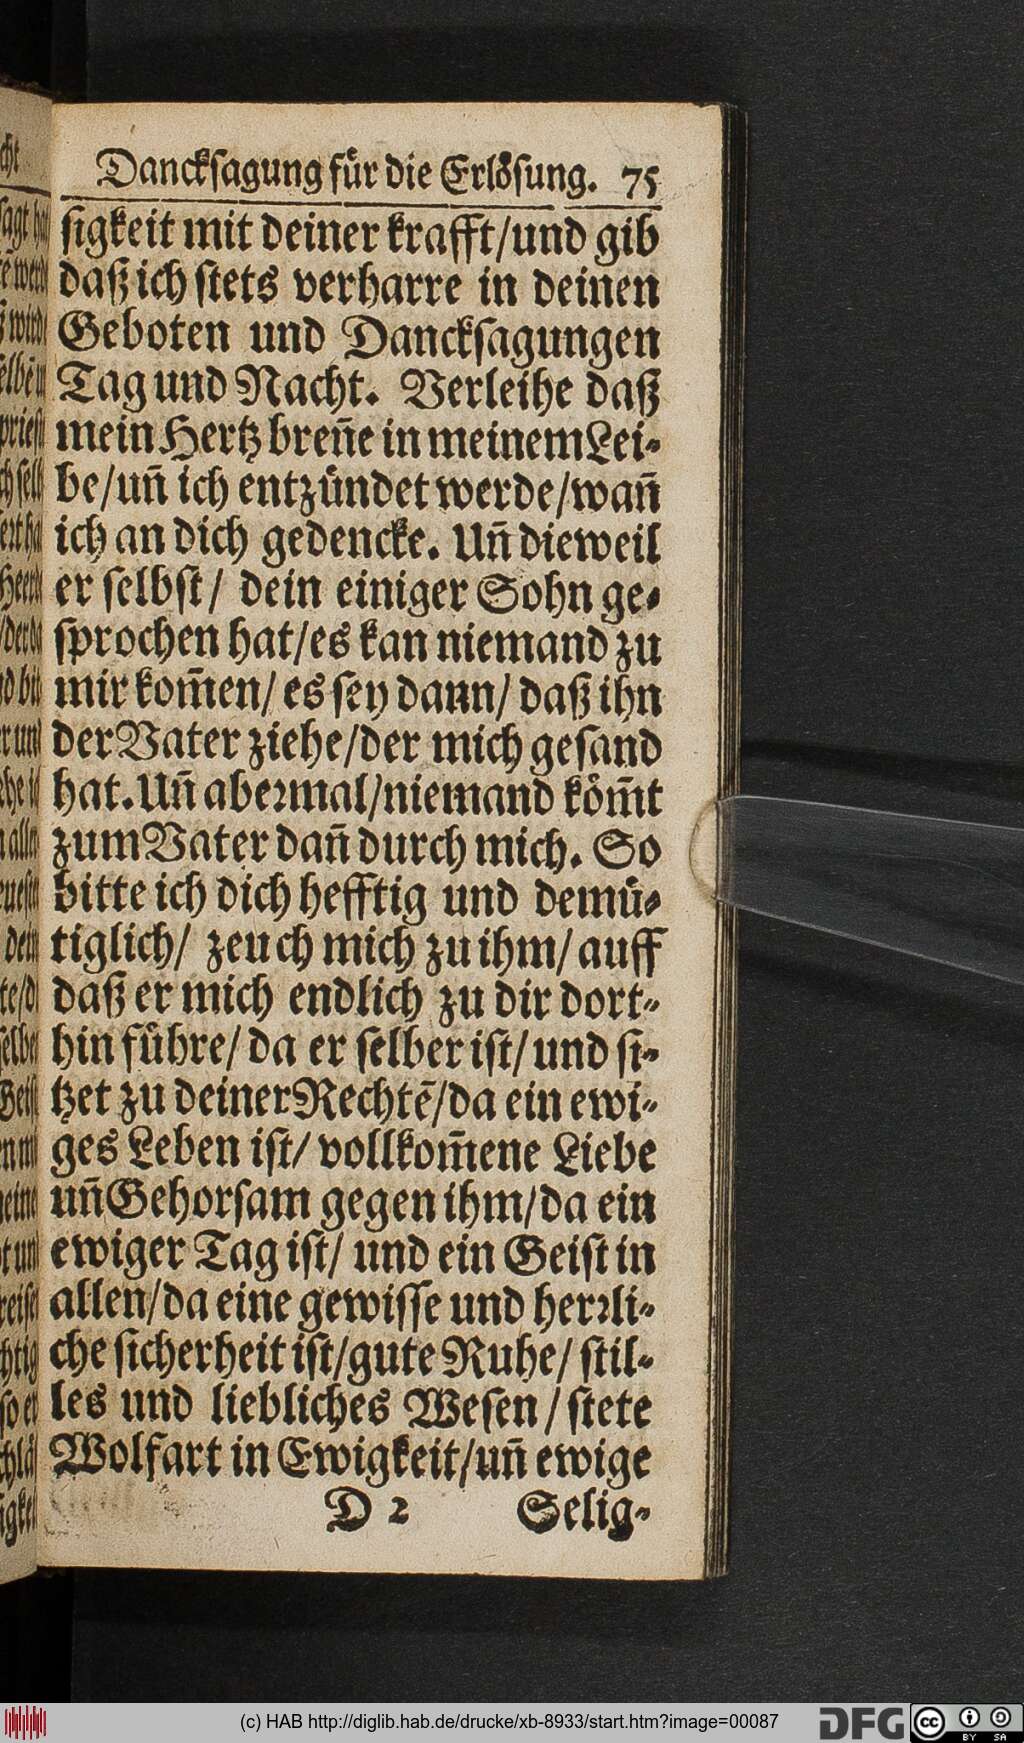 Danckſagung fuͤr die Erloͤſung. 75
ſigkeit mit deiner krafft/und gib
daß ich ſtets verharre in deinen
Geboten und Danckſagungen
Tag und Nacht. Verleihe daß
mein Hertz breñe in meinem Lei-
be/uñ ich entzuͤndet werde/wañ
ich an dich gedencke. Uñ dieweil
er ſelbſt/ dein einiger Sohn ge-
ſprochen hat/es kan niemand zu
mir kom̃en/ es ſey dann/ daß ihn
der Vater ziehe/der mich geſand
hat. Uñ abeꝛmal/niemand koͤm̃t
zum Vater dañ durch mich. So
bitte ich dich hefftig und demuͤ-
tiglich/ zeuch mich zu ihm/ auff
daß er mich endlich zu dir dort-
hin fuͤhre/ da er ſelber iſt/ und ſi-
tzet zu deiner Rechtẽ/da ein ewi-
ges Leben iſt/ vollkom̃ene Liebe
uñ Gehorſam gegen ihm/da ein
ewiger Tag iſt/ und ein Geiſt in
allen/da eine gewiſſe und herꝛli-
che ſicherheit iſt/gute Ruhe/ ſtil-
les und liebliches Weſen/ ſtete
Wolfart in Ewigkeit/uñ ewige
D 2 Selig-
(c) HAB http://diglib.hab.de/drucke/xb-8933/start.htm?image=00087
DFG
cc BY SA